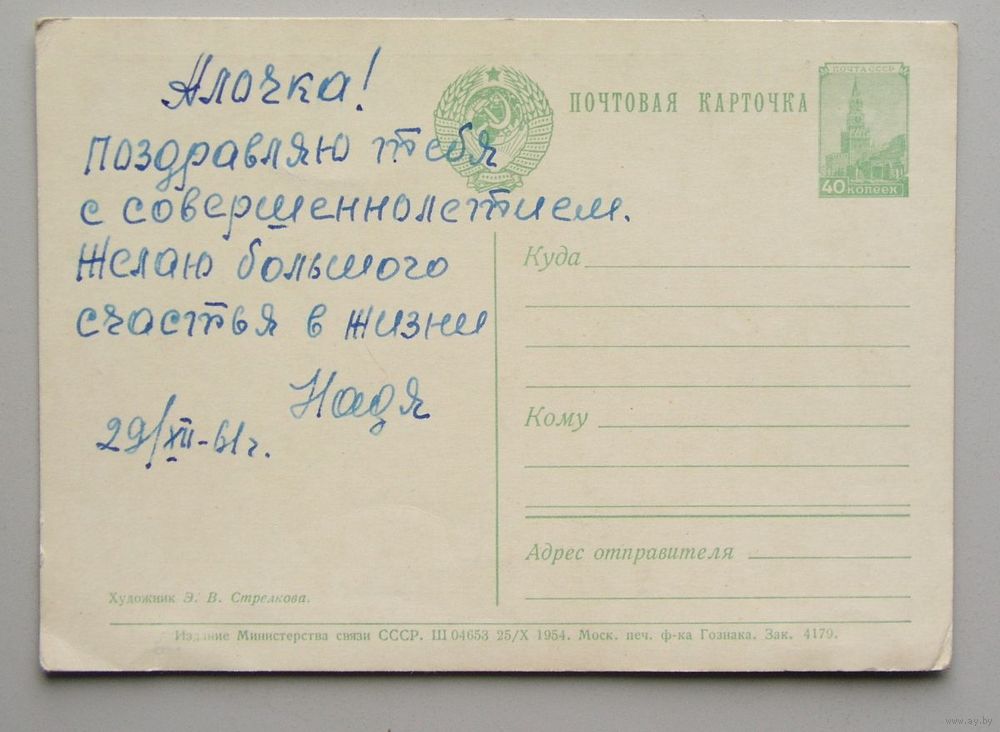 Алочка!
поздравляю тебя
с совершеннолетием.
Желаю большого
счастья в жизни
Надя
29/XII-61г.
ПОЧТОВАЯ КАРТОЧКА
ПОЧТА СССР
40 копеек
Куда
Кому
Адрес отправителя
Художник Э. В. Стрелкова.
Издание Министерства связи СССР. Ш 04653 25/X 1954. Моск. печ. ф-ка Гознака. Зак. 4179.
www.ay.by